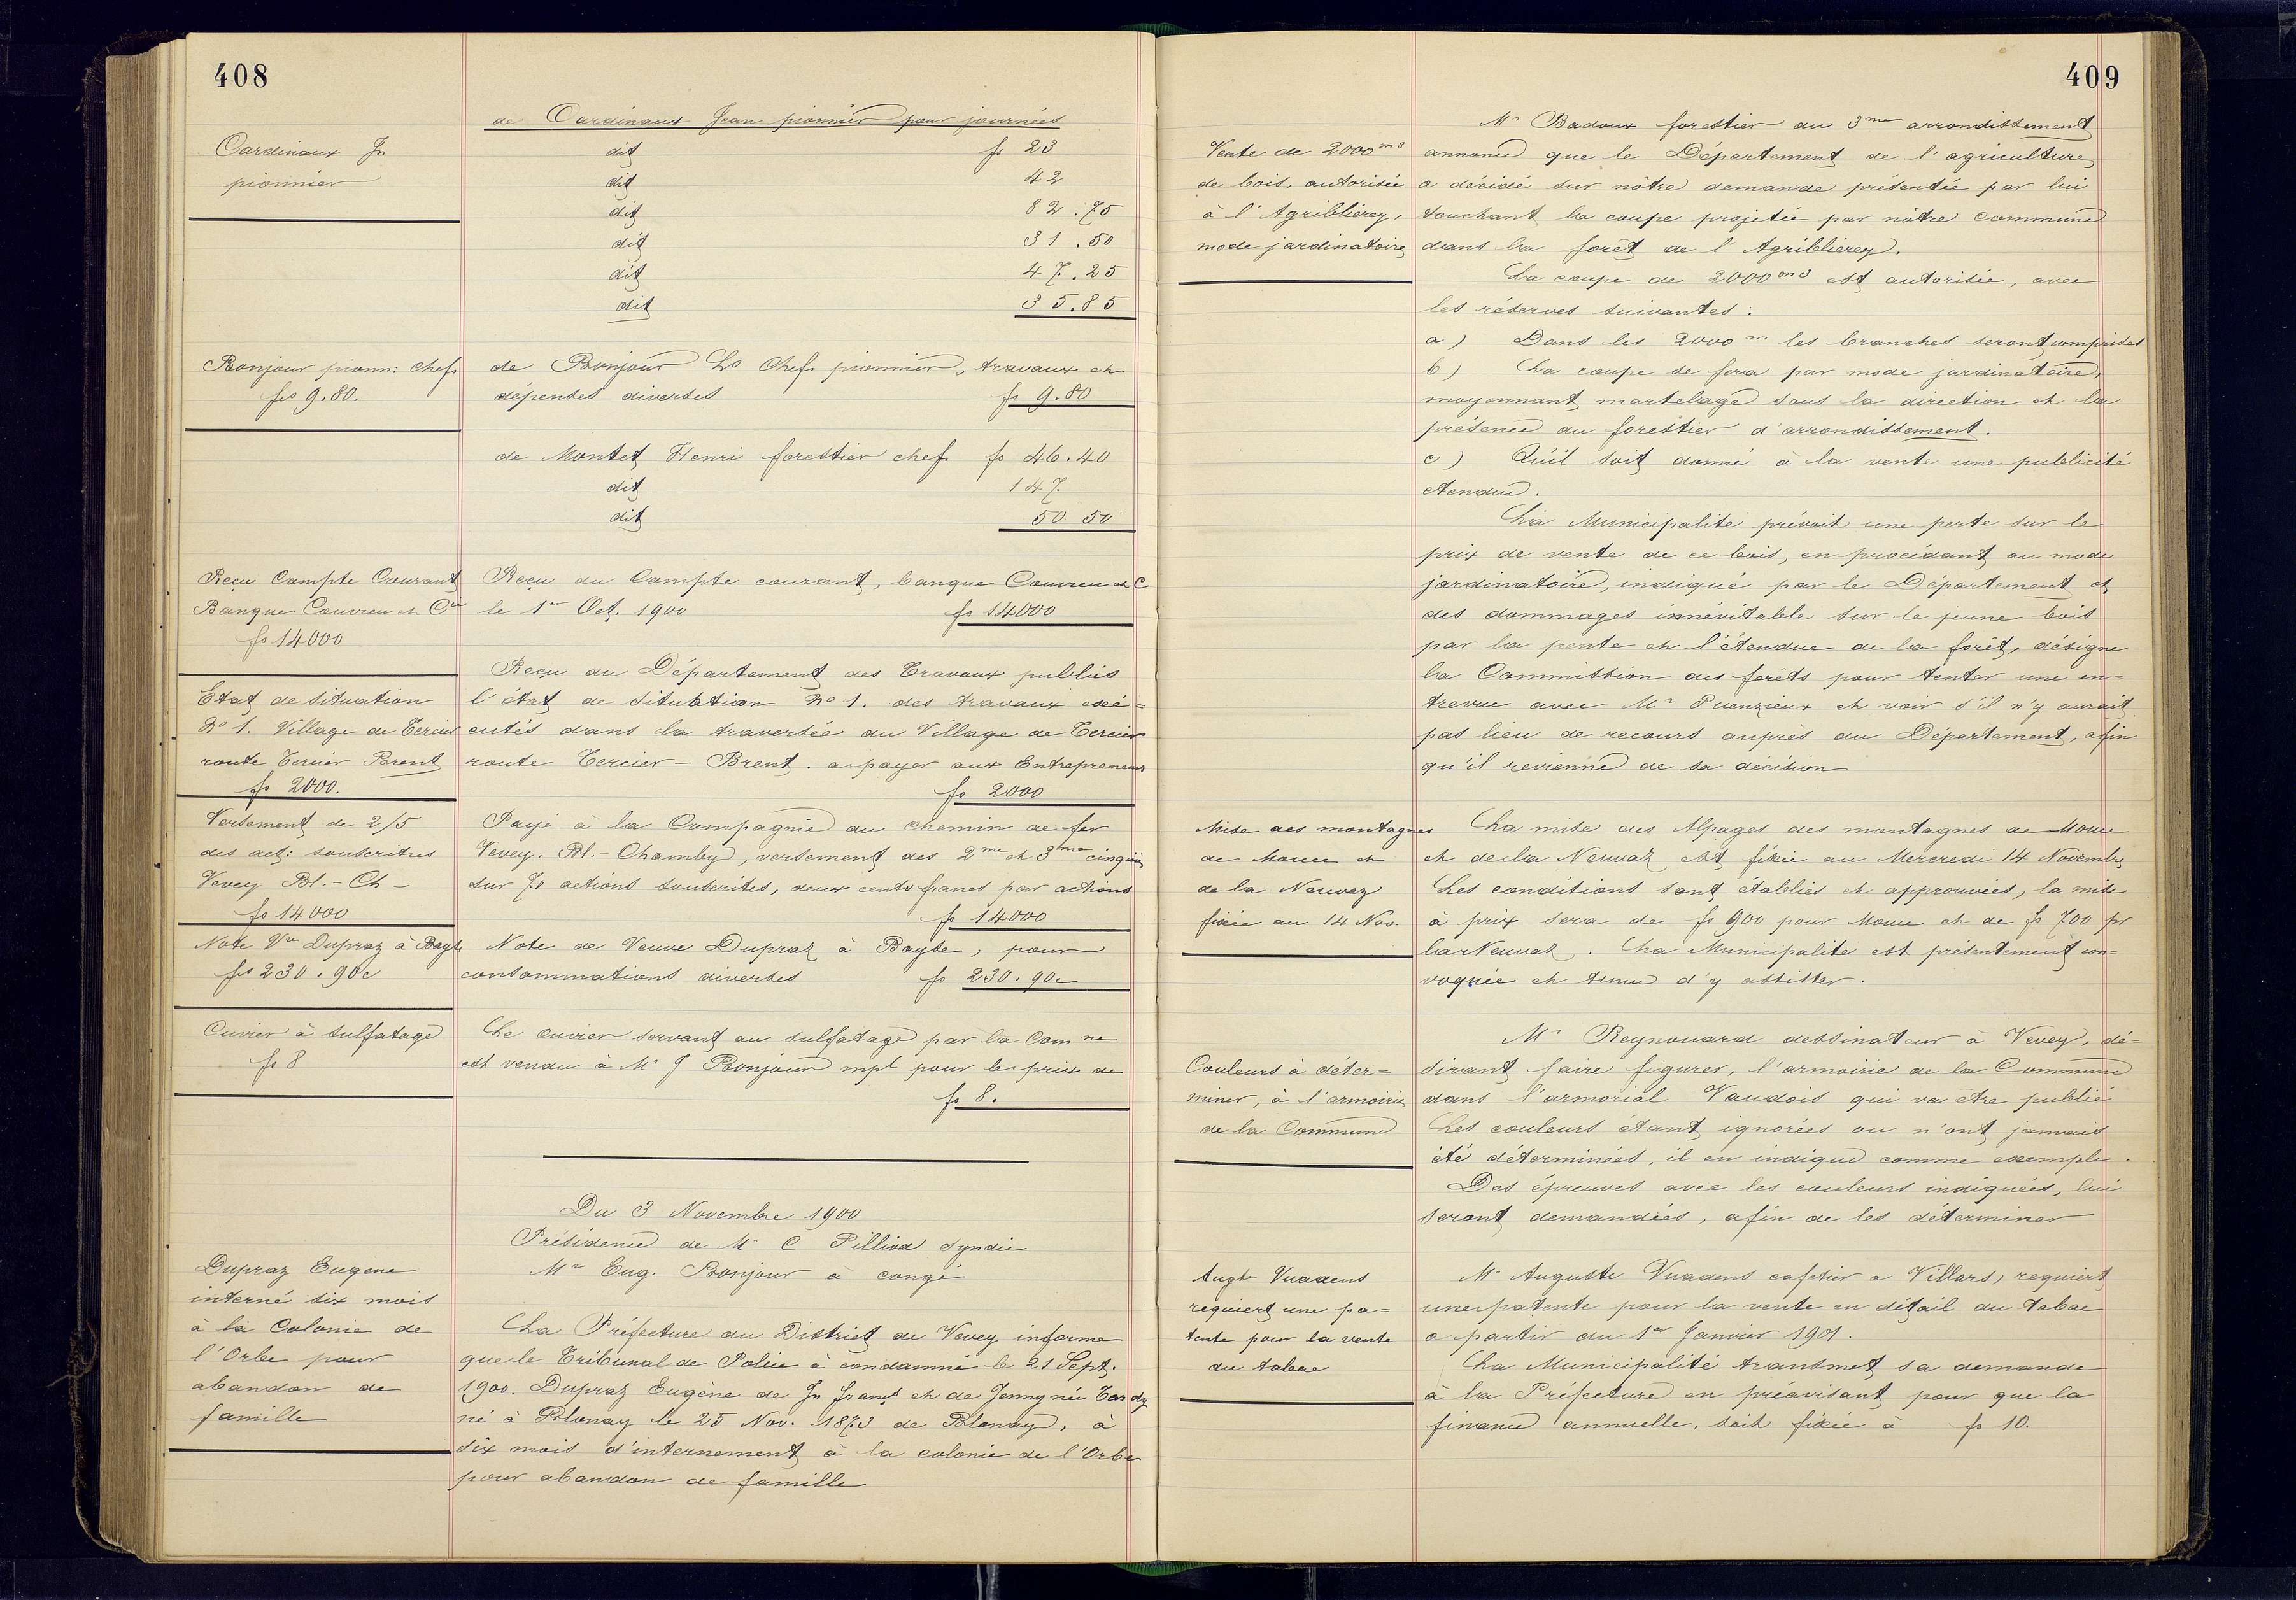 408
de Cardinaux Jean pionnier pour journées
Cardinaux Jn
pionnier
dit fs 23
dit 42
dit 82.75
dit 31.50
dit 47.25
dit 35.85
Bonjour pionn: chef
fs 9.80.
de Bonjour Ls Chef pionnier, travaux et
dépenses diverses fs 9.80
de Montet Henri forestier chef fs 46.40
dit 147.
dit 50 50
Reçu Compte Courant
Banque Couvreu et Cie
fs 14000
Reçu du Compte courant, banque Couvreu et C
le 1er Oct. 1900 fs 14000
Etat de situation
No 1. Village de Tercier
route Tercier Brent
fs 2000.
Reçu du Département des Travaux publics
l'état de situation No 1. des travaux exé=
cutés dans la traversée du Village de Tercier
route Tercier - Brent. a payer aux Entrepreneurs
fs 2000
Versement de 2/5
des act: souscrites
Vevey Bl.- Ch -
fs 14000
Payé à la Compagnie du chemin de fer
Vevey. Bl.- Chamby, versement des 2me et 3me cinqièm
sur 70 actions souscrites, deux cents francs par actions
fs 14000
Note Vve Dupraz à Bayse
fs 230.90c
Note de Veuve Dupraz à Bayse, pour
consommations diverses fs 230.90c
Cuvier à sulfatage
fs 8
Le cuvier servant au sulfatage par la Com ne
est vendu à Mr J Bonjour mpl pour le prix de
fs 8.
Du 3 Novembre 1900
Présidence de Mr C Pilliod Syndic
Mr Eug. Bonjour à congé
Dupraz Eugene
interné six mois
à la Colonie de
l'Orbe pour
abandon de
famille
La Préfecture du District de Vevey informe
que le Tribunal de Police à condamné le 21 Sept.
1900. Dupraz Eugène de Jn Franç et de Jenny née Tardy
né à Blonay le 25 Nov. 1873 de Blonay, à
six mois d'internement à la colonie de l'Orbe
pour abandon de famille
409
Vente de 2000 m3
de bois, autorisée
à l'Agiblierey,
mode jardinatoire
Mr Badoux forestier du 3me arrondissement
annonce que le Département de l'agriculture
a décidé sur nôtre demande présentée par lui
touchant la coupe projetée par nôtre Commune
dans la forêt de l'Agriblierey.
La coupe de 2000 m3 est autorisée, avec
les réserves suivantes:
a) Dans les 2000 m les branches seront comprises
b) La coupe se fera par mode jardinatoire,
moyennant martelage sous la direction et la
présence du forestier d'arrondissement.
c) Qu'il soit donné à la vente une publicité
étendue.
La Municipalité prévoit une perte sur le
prix de vente de ce bois, en procédant au mode
jardinatoire, indiqué par le Département et
des dommages innévitable sur le jeune bois
par la pente et l'étendue de la forêt, désigne
la Commission des forêts pour tenter une en=
trevue avec Mr Puenzieux et voir s'il n'y aurait
pas lieu de recours auprès du Département, afin
qu'il revienne de sa décision
Mise des montagnes
de Mouce et
de la Neuvaz
fixée au 14 Nov.
La mise des Alpages des montagnes de Mouce
et de la Neuvaz est fixée au Mercredi 14 Novembre
Les conditions sont établies et approuvées, la mise
à prix sera de fs 900 pour Mouce et de fs 700 pr
la Neuvaz. La Municipalité est présentement con=
voquée et tenue d'y assister.
Couleurs à déter=
miner, à l'armoirie
de la Commune
Mr Reynouard dessinateur à Vevey, dé=
sirant faire figurer, l'armoirie de la Commune
dans l'armorial Vaudois qui va etre publié
Les couleurs étant ignorées ou n'ont jamais
été déterminées, il en indique comme exemple.
Des épreuves avec les couleurs indiquées, lui
seront demandées, afin de les déterminer
Augte Vuadens
requiert une pa=
tente pour la vente
du tabac
Mr Auguste Vuadens cafetier a Villars, requiert
une patente pour la vente en détail du tabac
a partir du 1er Janvier 1901.
La Municipalité transmet sa demande
à la Préfecture en préavisant pour que la
finance annuelle, soit fixée à fs 10.